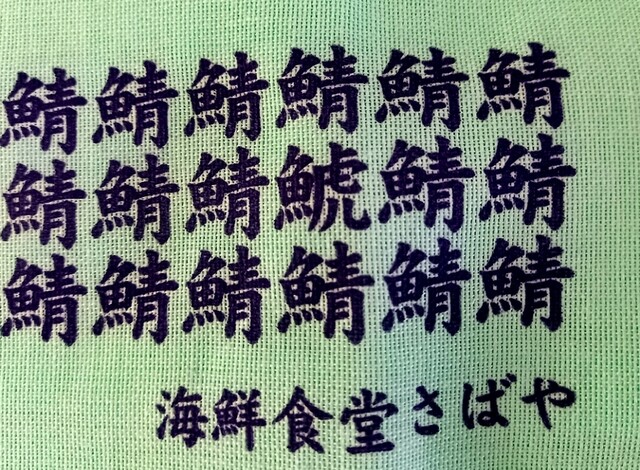 鯖鯖鯖鯖鯖鯖
鯖鯖鯖鯱鯖鯖
鯖鯖鯖鯖鯖鯖
海鮮食堂さばや